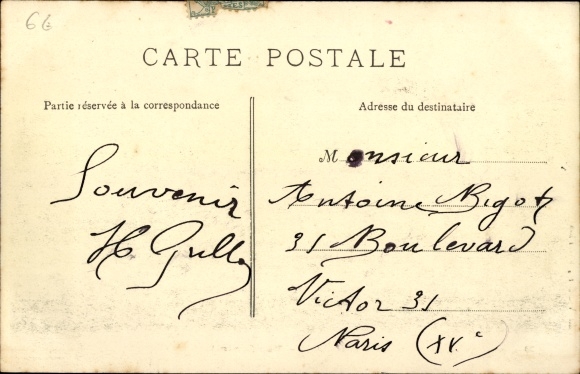 6€
CARTE POSTALE
Partie réservée à la correspondance
Adresse du destinataire
Souvenir
H Grillo
Monsieur
Antoine Bigot
31 Boulevard
Victor 31
Paris (XV e